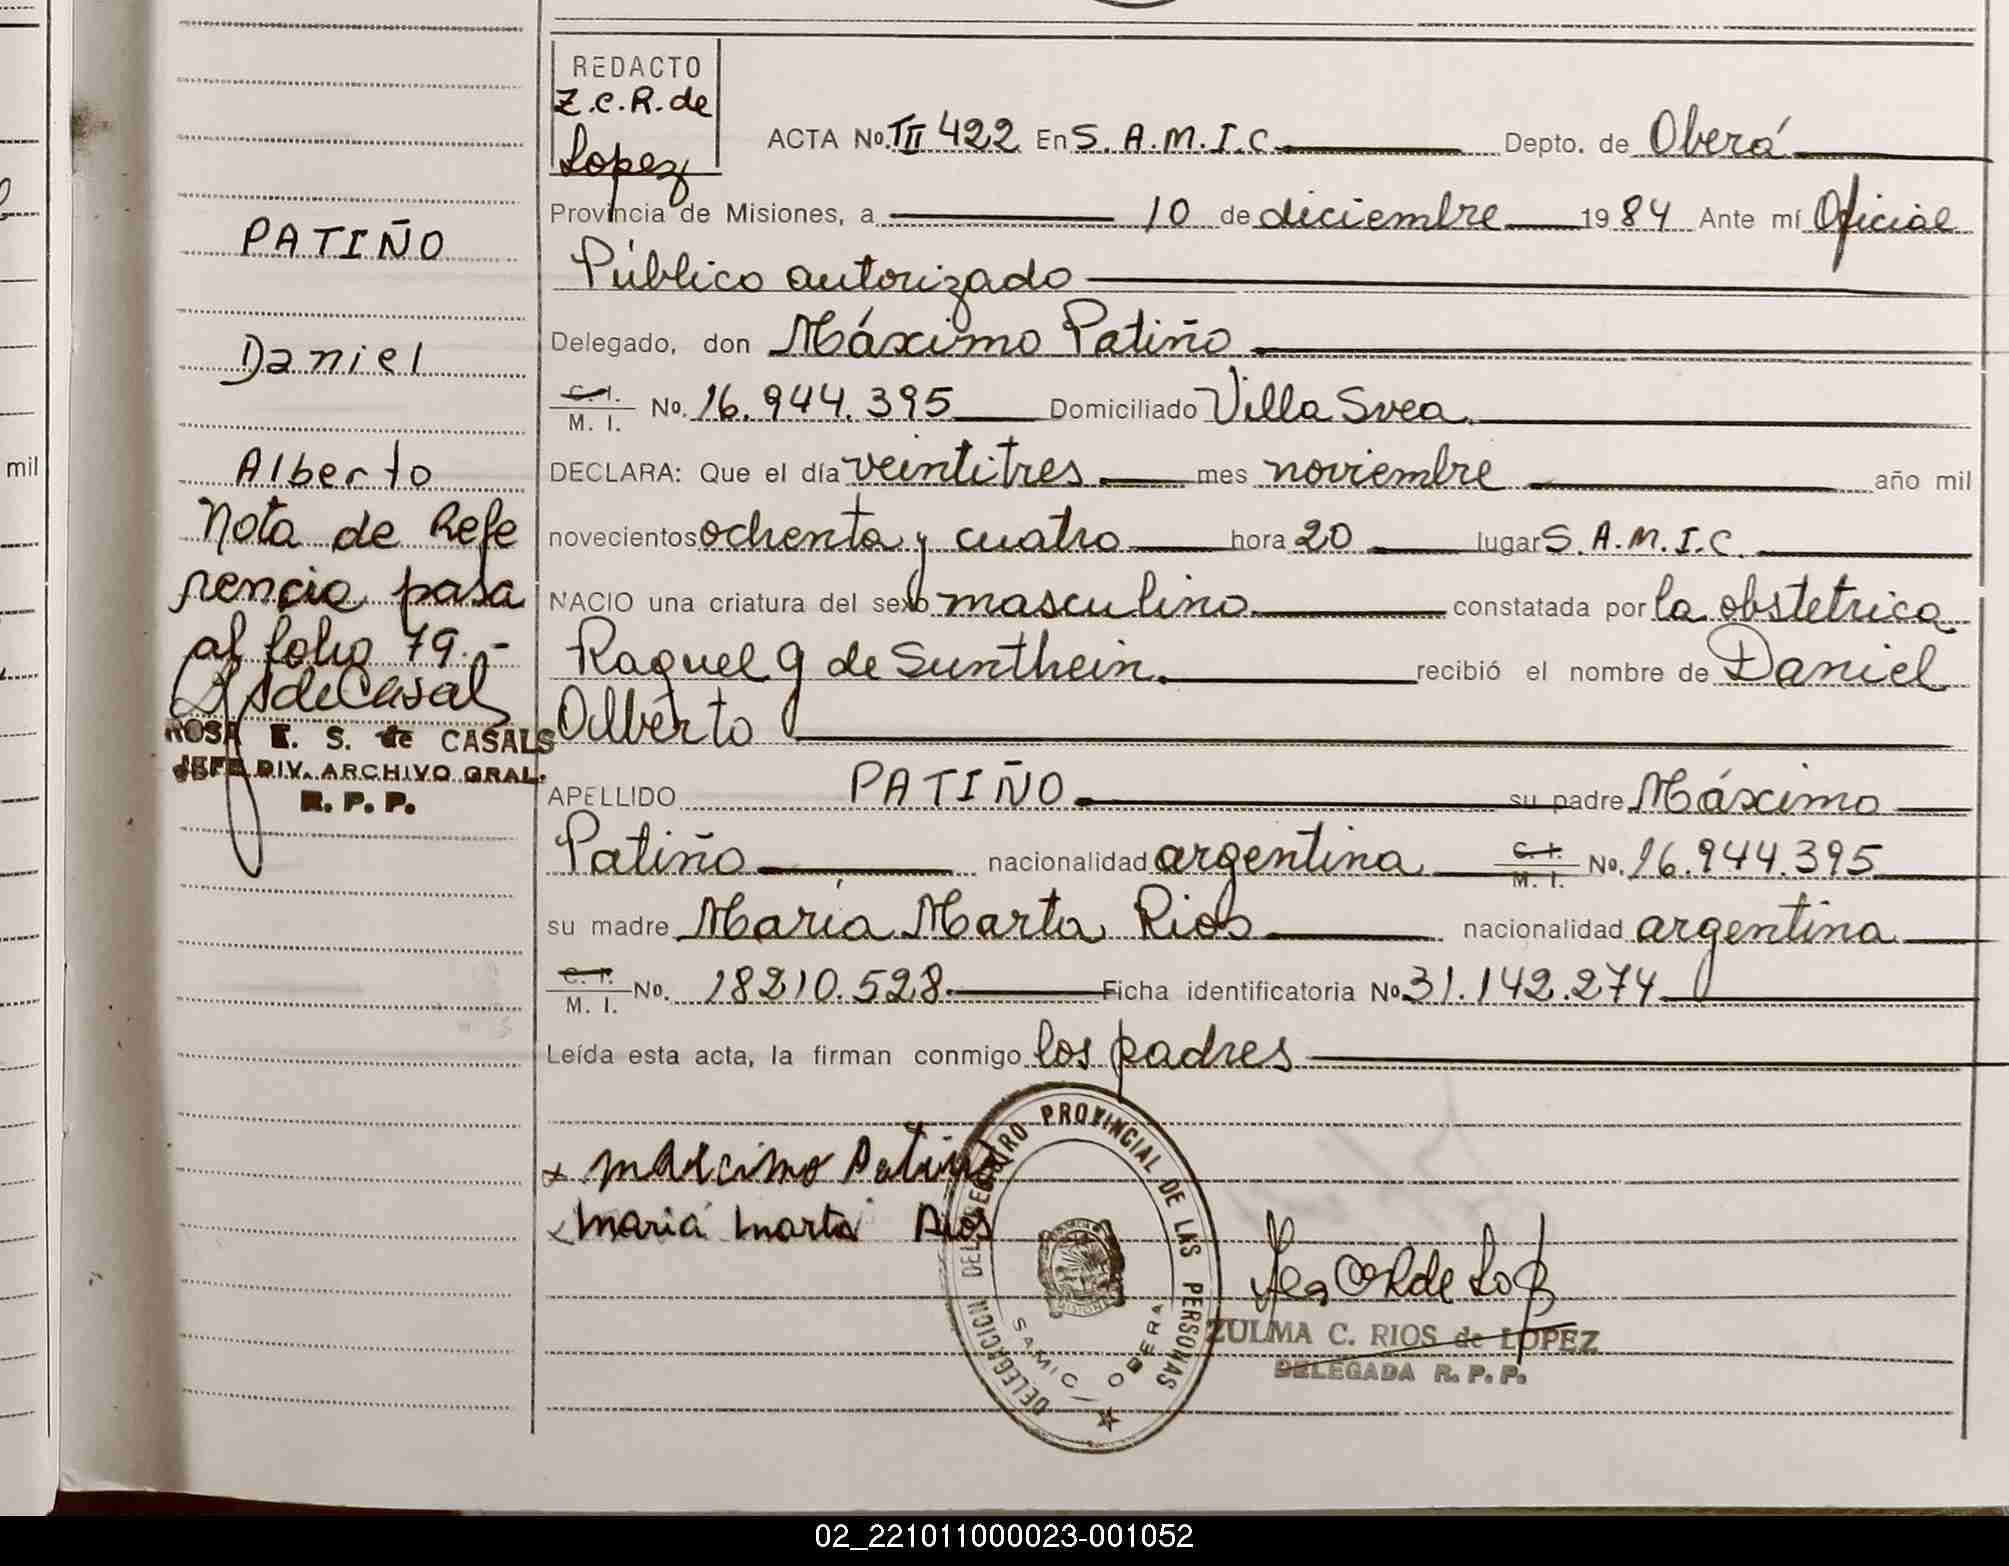 mil
PATIÑO
Daniel
Alberto
Nota de Refe
rencia pasa
al folio 79.-
ROSA E. S. de CASALS
JEFE DIV. ARCHIVO GRAL.
R. P. P.
REDACTO
Z.C.R. de
Lopez
ACTA No. III 422 En S.A.M.I.C. Depto. de Oberá
Provincia de Misiones, a 10 de diciembre 1984 Ante mí Oficial
Público autorizado
Delegado, don Máximo Patiño
C. I. M. I. No. 16.944.395 Domiciliado Villa Svea
DECLARA: Que el día veintitres mes noviembre año mil
novecientos ochenta y cuatro hora 20 lugar S.A.M.I.C.
NACIO una criatura del sexo masculino constatada por la obstetrica
Raquel G de Sunthein recibió el nombre de Daniel
Alberto
APELLIDO PATIÑO su padre Máximo
Patiño nacionalidad argentina C. I. M. I. No. 16.944.395
su madre María Marta Rios nacionalidad argentina
C. I. M. I. No. 18210.528 Ficha identificatoria No 31.142.274
Leída esta acta, la firman conmigo los padres
x Maxcimo Patiño
x Maria Marta Rios
DELEGACION DEL REGISTRO PROVINCIAL DE LAS PERSONAS
SAMIC / OBERA
MISIONES
ZULMA C. RIOS de LOPEZ
DELEGADA R. P. P.
02_221011000023-001052